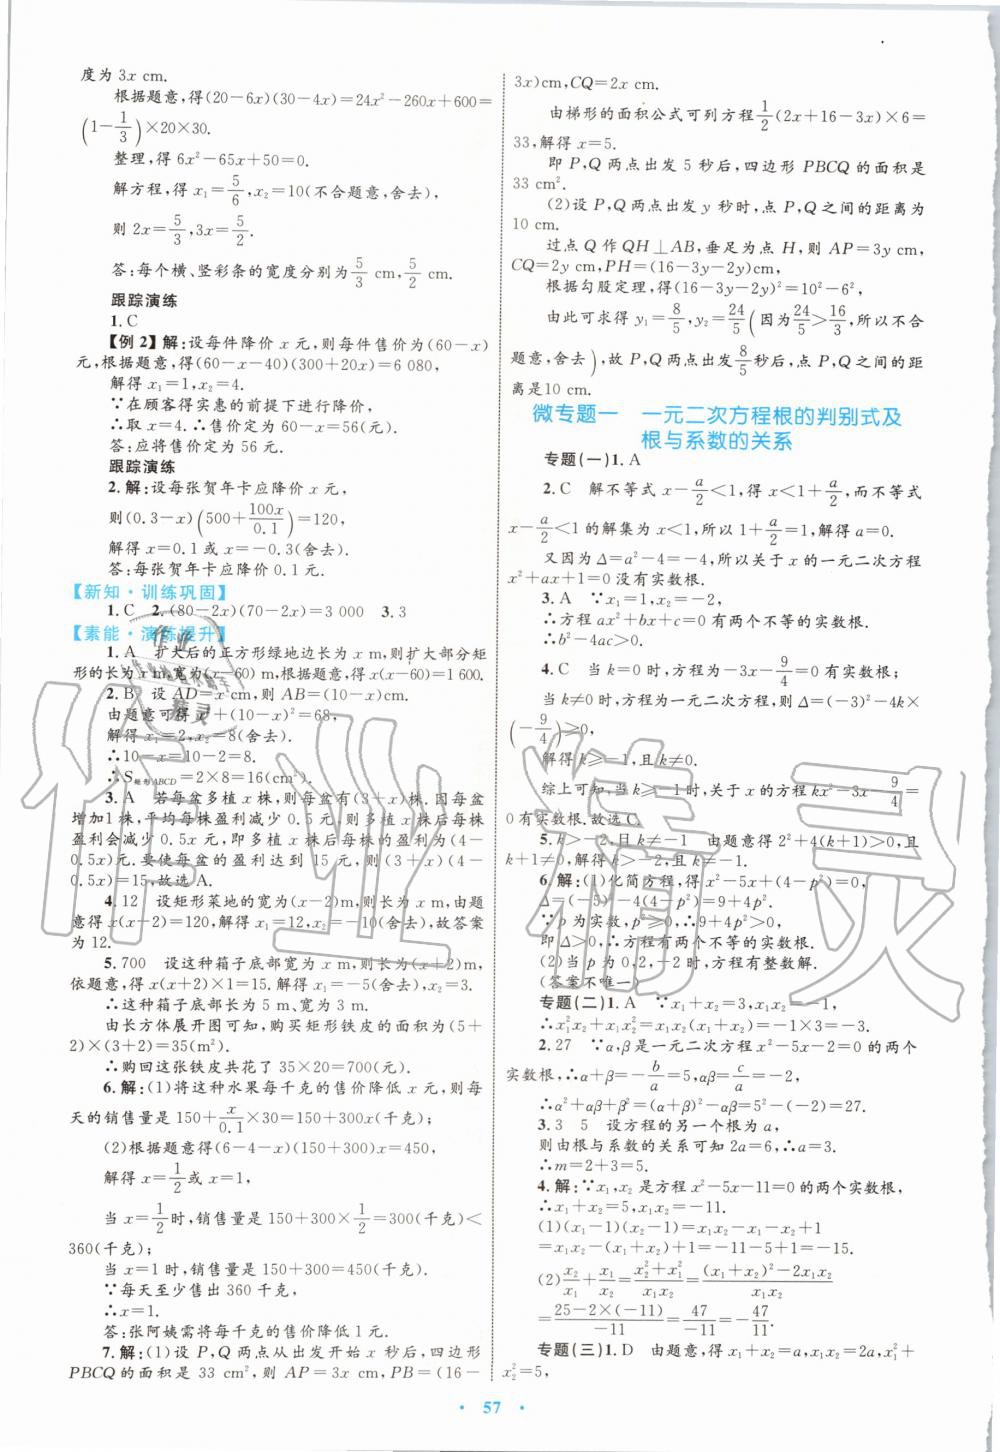 度为 3x cm.
根据题意,得(20-6x)(30-4x)=24x²-260x+600=
(1-1/3)×20×30.
整理,得 6x²-65x+50=0.
解方程,得 x₁=5/6,x₂=10(不合题意,舍去),
则 2x=5/3,3x=5/2.
答:每个横、竖彩条的宽度分别为5/3 cm,5/2 cm.
跟踪演练
1.C
【例 2】解:设每件降价 x 元,则每件售价为(60-x)
元,根据题意,得(60-x-40)(300+20x)=6 080,
解得 x₁=1,x₂=4.
∵在顾客得实惠的前提下进行降价,
∴取 x=4.∴售价定为 60-x=56(元).
答:应将售价定为 56 元.
跟踪演练
2.解:设每张贺年卡应降价 x 元,
则(0.3-x)(500+100x/0.1)=120,
解得 x=0.1 或 x=-0.3(舍去).
答:每张贺年卡应降价 0.1 元.
【新知·训练巩固】
1.C 2.(80-2x)(70-2x)=3 000 3.3
【素能·演练提升】
1.A 扩大后的正方形绿地边长为 x m,则扩大部分矩
形的长为 x m,宽为(x-60) m,根据题意,得 x(x-60)=1 600.
2.B 设 AD=x cm,则 AB=(10-x)cm.
由题意可得 x²+(10-x)²=68,
解得 x₁=2,x₂=8(舍去).
∴10-x=10-2=8.
∴S矩形ABCD=2×8=16(cm²).
3.A 若每盆多植 x 株,则每盆有(3+x)株.因每盆
增加1株,平均每株盈利减少 0.5 元,则多植 x 株后每株
盈利会减少 0.5x 元,即多植 x 株后每株盈利为(4-
0.5x)元.要使每盆的盈利达到 15 元,则(3+x)(4-
0.5x)=15,故选 A.
4.12 设矩形菜地的宽为(x-2)m,则长为 x m,由题
意得 x(x-2)=120,解得 x₁=12,x₂=-10(舍去),故答案
为 12.
5.700 设这种箱子底部宽为 x m,则长为(x+2)m,
依题意,得 x(x+2)×1=15.解得 x₁=-5(舍去),x₂=3.
∴这种箱子底部长为 5 m、宽为 3 m.
由长方体展开图可知,购买矩形铁皮的面积为(5+
2)×(3+2)=35(m²).
∴购回这张铁皮共花了 35×20=700(元).
6.解:(1)将这种水果每千克的售价降低 x 元,则每
天的销售量是 150+x/0.1×30=150+300x(千克);
(2)根据题意得(6-4-x)(150+300x)=450,
解得 x=1/2或 x=1,
当 x=1/2时,销售量是 150+300×1/2=300(千克)<
360(千克);
当 x=1时,销售量是 150+300=450(千克).
∵每天至少售出 360 千克,
∴x=1.
答:张阿姨需将每千克的售价降低 1 元.
7.解:(1)设 P,Q 两点从出发开始 x 秒后,四边形
PBCQ 的面积是 33 cm²,则 AP=3x cm,PB=(16-
3x)cm,CQ=2x cm.
由梯形的面积公式可列方程1/2(2x+16-3x)×6=
33,解得 x=5.
即 P,Q 两点出发 5 秒后,四边形 PBCQ 的面积是
33 cm².
(2)设 P,Q 两点出发 y 秒时,点 P,Q 之间的距离为
10 cm.
过点 Q 作 QH⊥AB,垂足为点 H,则 AP=3y cm,
CQ=2y cm,PH=(16-3y-2y)cm,
根据勾股定理,得(16-3y-2y)²=10²-6²,
由此可求得 y₁=8/5,y₂=24/5(因为24/5>16/3,所以不合
题意,舍去),故 P,Q 两点出发8/5秒后,点 P,Q 之间的距
离是10 cm.
微专题一 一元二次方程根的判别式及
根与系数的关系
专题(一)1.A
2.C 解不等式 x-a/2<1,得 x<1+a/2,而不等式
x-a/2<1 的解集为 x<1,所以 1+a/2=1,解得 a=0.
又因为 Δ=a²-4=-4,所以关于 x 的一元二次方程
x²+ax+1=0 没有实数根.
3.A ∵x₁=1,x₂=-2,
∴方程 ax²+bx+c=0 有两个不等的实数根.
∴b²-4ac>0.
4.C 当 k=0 时,方程为-3x-9/4=0 有实数根;
当 k≠0 时,方程为一元二次方程,则 Δ=(-3)²-4k×
(-9/4)≥0,
解得 k≥-1,且 k≠0.
综上可知,当 k≥-1时,关于 x 的方程 kx²-3x-9/4=
0 有实数根.故选 C.
5.k>-2,且 k≠-1 由题意得 2²+4(k+1)>0,且
k+1≠0,解得 k>-2,且 k≠-1.
6.解:(1)化简方程,得 x²-5x+(4-p²)=0.
Δ=(-5)²-4(4-p²)=9+4p².
∵p 为实数,p²≥0,∴9+4p²>0,
即 Δ>0,∴方程有两个不等的实数根.
(2)当 p 为 0,2,-2 时,方程有整数解.
(答案不唯一)
专题(二)1.A ∵x₁+x₂=3,x₁x₂=-1,
∴x₁²x₂+x₁x₂²=x₁x₂(x₁+x₂)=-1×3=-3.
2.27 ∵α,β是一元二次方程 x²-5x-2=0 的两个
实数根,∴α+β=-b/a=5,αβ=c/a=-2,
∴α²+αβ+β²=(α+β)²-αβ=5²-(-2)=27.
3.3 5 设方程的另一个根为 a,
则由根与系数的关系可知 2a=6,∴a=3.
∴m=2+3=5.
4.解:∵x₁,x₂ 是方程 x²-5x-11=0 的两个实数根,
∴x₁+x₂=5,x₁x₂=-11.
(1)(x₁-1)(x₂-1)=x₁x₂-x₁-x₂+1
=x₁x₂-(x₁+x₂)+1=-11-5+1=-15.
(2)x₂/x₁+x₁/x₂=(x₂²+x₁²)/(x₁x₂)=((x₁+x₂)²-2x₁x₂)/(x₁x₂)
=(25-2×(-11))/(-11)=47/(-11)=-47/11.
专题(三)1.D 由题意,得 x₁+x₂=a,x₁x₂=2a,x₁²+
x₂²=5,
· 57 ·
作业精灵